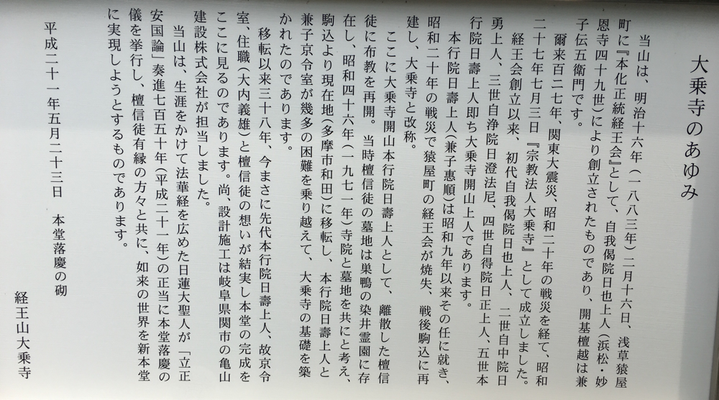 大乗寺のあゆみ
当山は、明治十六年（一八八三年）二月十六日、浅草猿屋
町に『本化正統経王会』として、自我偈院日也上人（浜松・妙
恩寺四十九世）により創立されたものであり、開基檀越は兼
子伝五衛門です。
爾来百二七年、関東大震災、昭和二十年の戦災を経て、昭和
二十七年七月三日『宗教法人大乗寺』として成立しました。
経王会創立以来、初代自我偈院日也上人、二世自中院日
勇上人、三世自浄院日澄法尼、四世自得院日正上人、五世本
行院日壽上人即ち大乗寺開山上人であります。
本行院日壽上人（兼子惠順）は昭和九年以来その任に就き、
昭和二十年の戦災で猿屋町の経王会が焼失、戦後駒込に再
建し、大乗寺と改称。
ここに大乗寺開山本行院日壽上人として、離散した檀信
徒に布教を再開。当時檀信徒の墓地は巣鴨の染井霊園に存
在し、昭和四十六年（一九七一年）寺院と墓地を共にと考え、
駒込より現在地（多摩市和田）に移転し、本行院日壽上人と
兼子京令室が幾多の困難を乗り越えて、大乗寺の基礎を築
かれたのであります。
移転以来三十八年、今まさに先代本行院日壽上人、故京令
室、住職（大内義雄）と檀信徒の想いが結実し本堂の完成を
ここに見るのであります。尚、設計施工は岐阜県関市の亀山
建設株式会社が担当しました。
当山は、生涯をかけて法華経を広めた日蓮大聖人が「立正
安国論」奏進七百五十年（平成二十一年）の正当に本堂落慶の
儀を挙行し、檀信徒有縁の方々と共に、如来の世界を新本堂
に実現しようとするものであります。
平成二十一年五月二十三日　本堂落慶の砌
経王山大乗寺